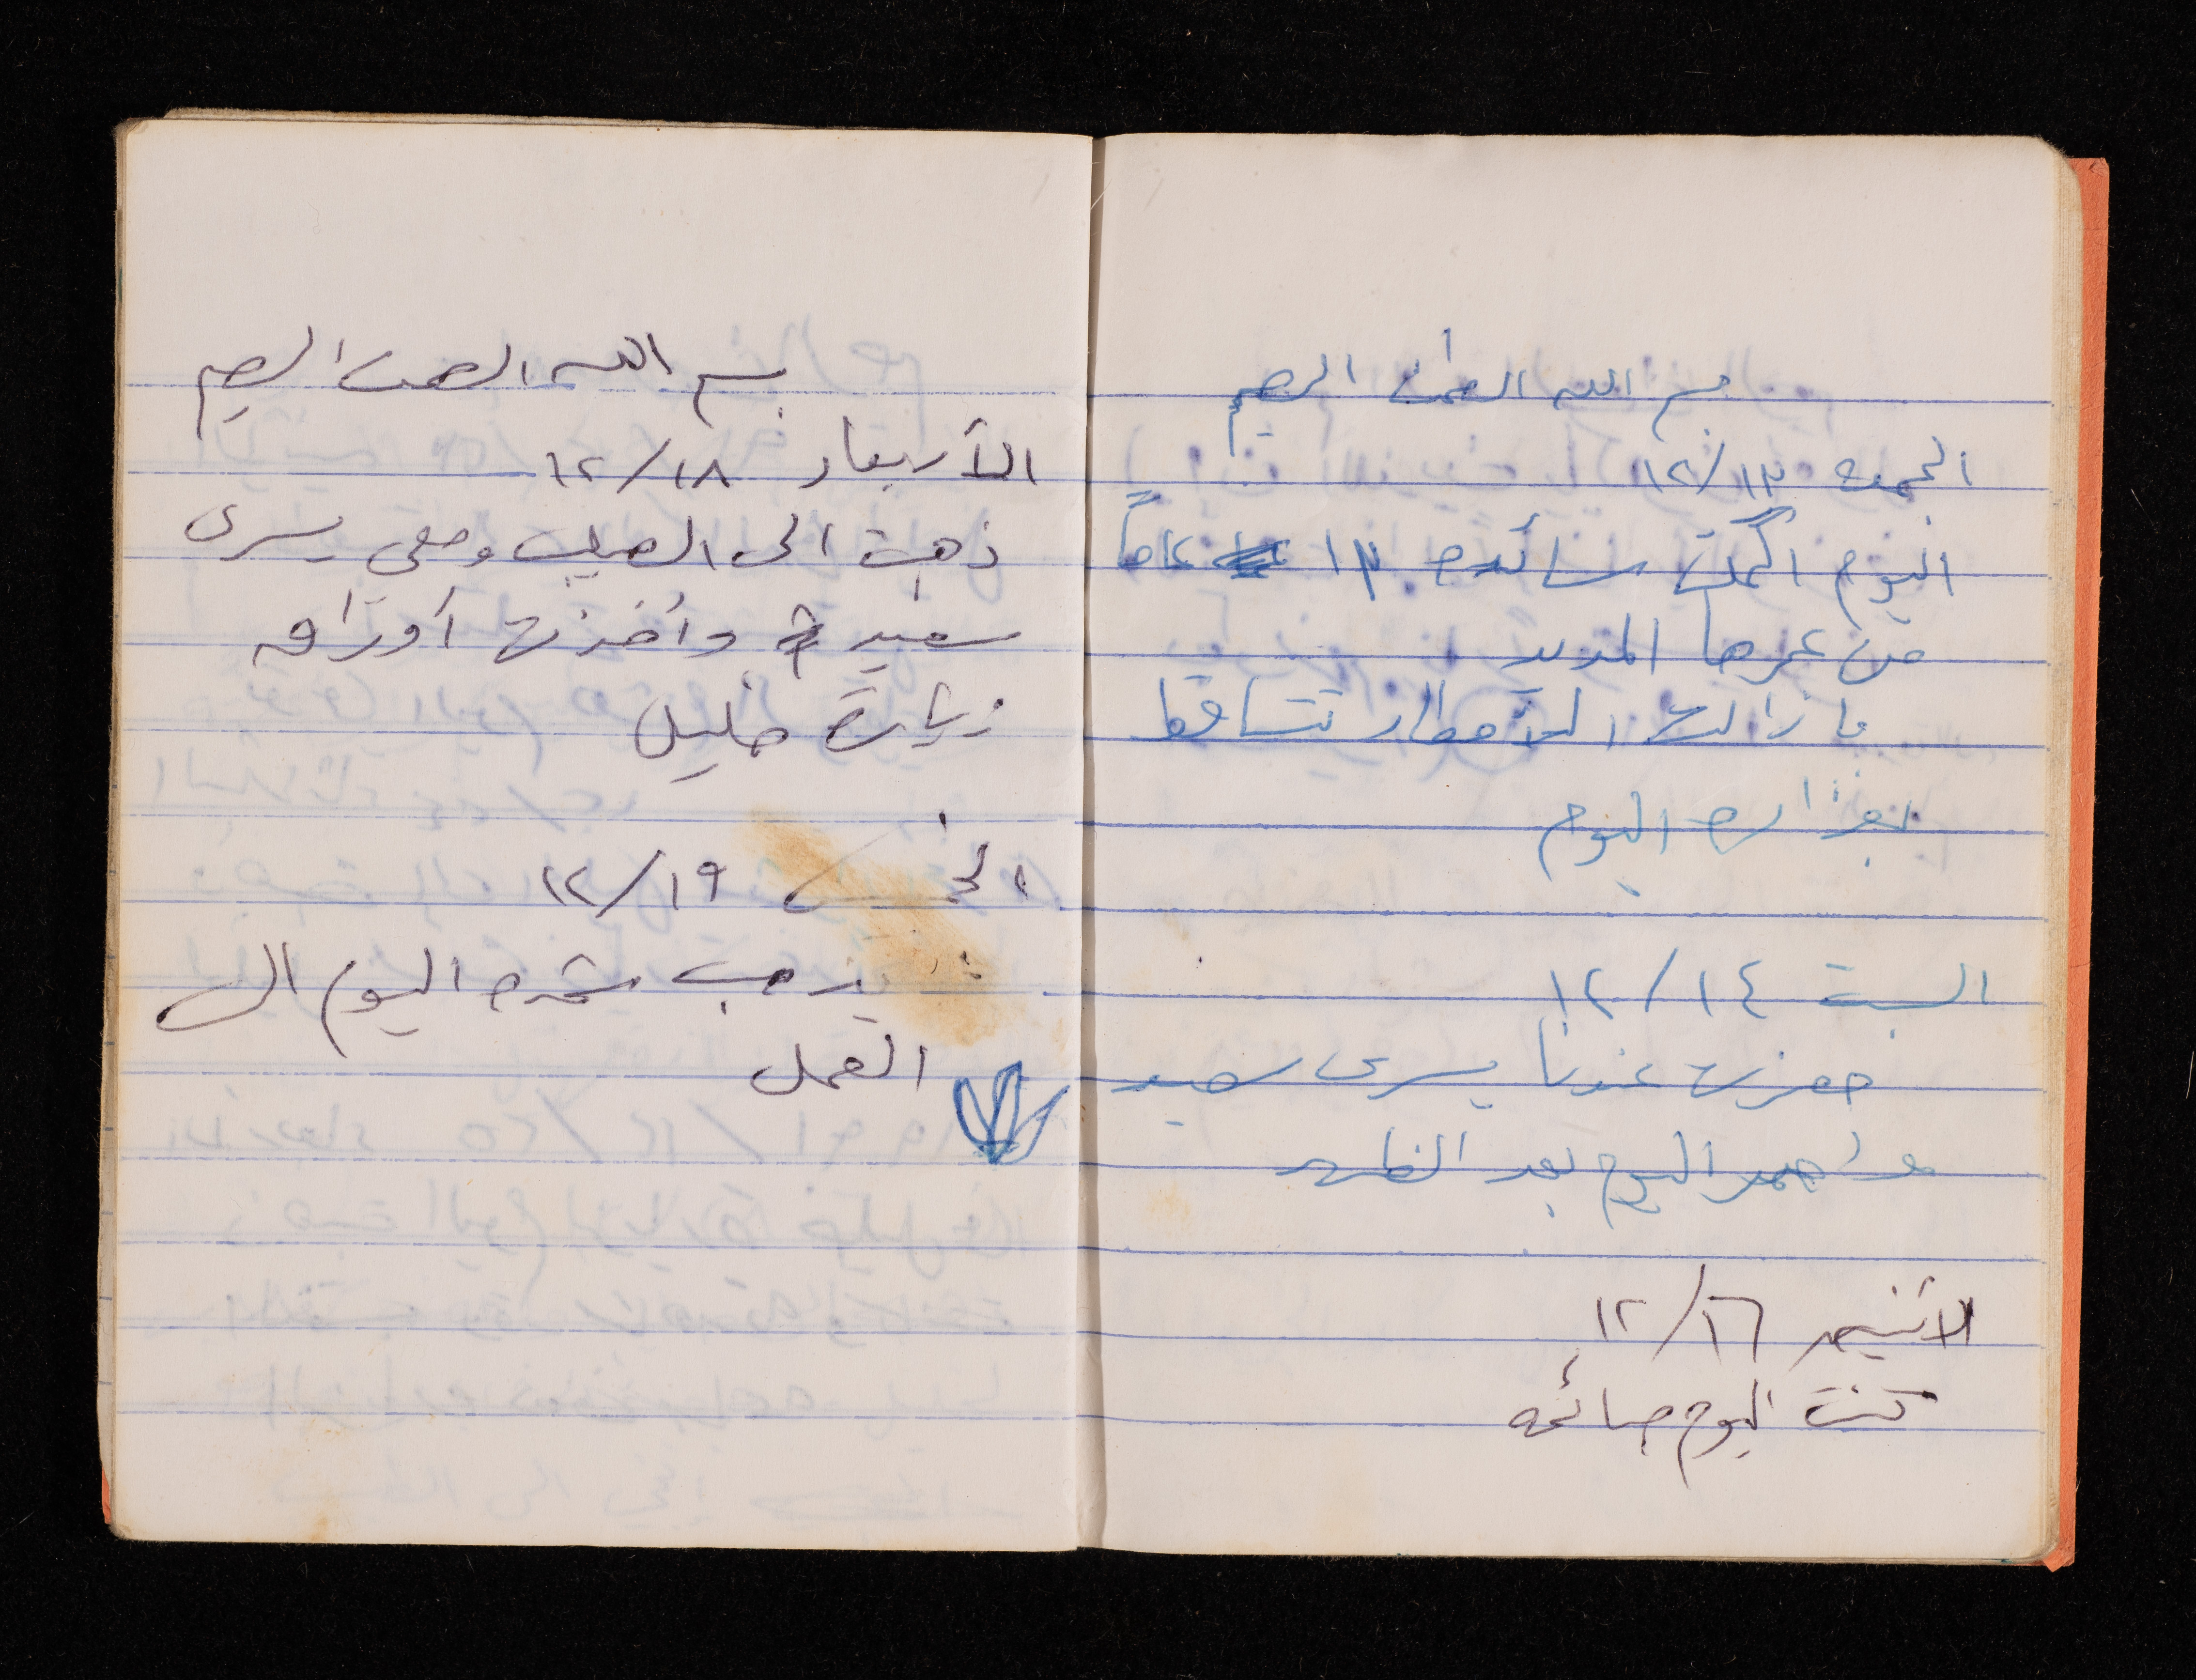 بسم الله الرحمن الرحيم
الجمعه ١٢/١٣
اليوم اكملت سائده ١٣ عاماً
من عمرها المديد
ما زالت الأمطار تتساقط
بغزاره اليوم
السبت ١٢/١٤
حضرت عندنا يسرى سعيد
واحمد اليوم بعد الظهر
الاثنين ١٢/١٦
كنت اليوم صائمه
بسم الله الرحمن الرحيم
الأربعاء ١٢/١٨
ذهبت الى الصليب ومعي يسرى
سعيد وأخذت أوراق
زيارة خليل
الخميس ١٢/١٩
يذهب اليوم الى
العمل